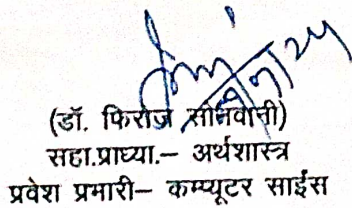 (डॉ. फिरोज सोनवानी)
सहा.प्राध्या.– अर्थशास्त्र
प्रवेश प्रभारी– कम्प्यूटर साईंस